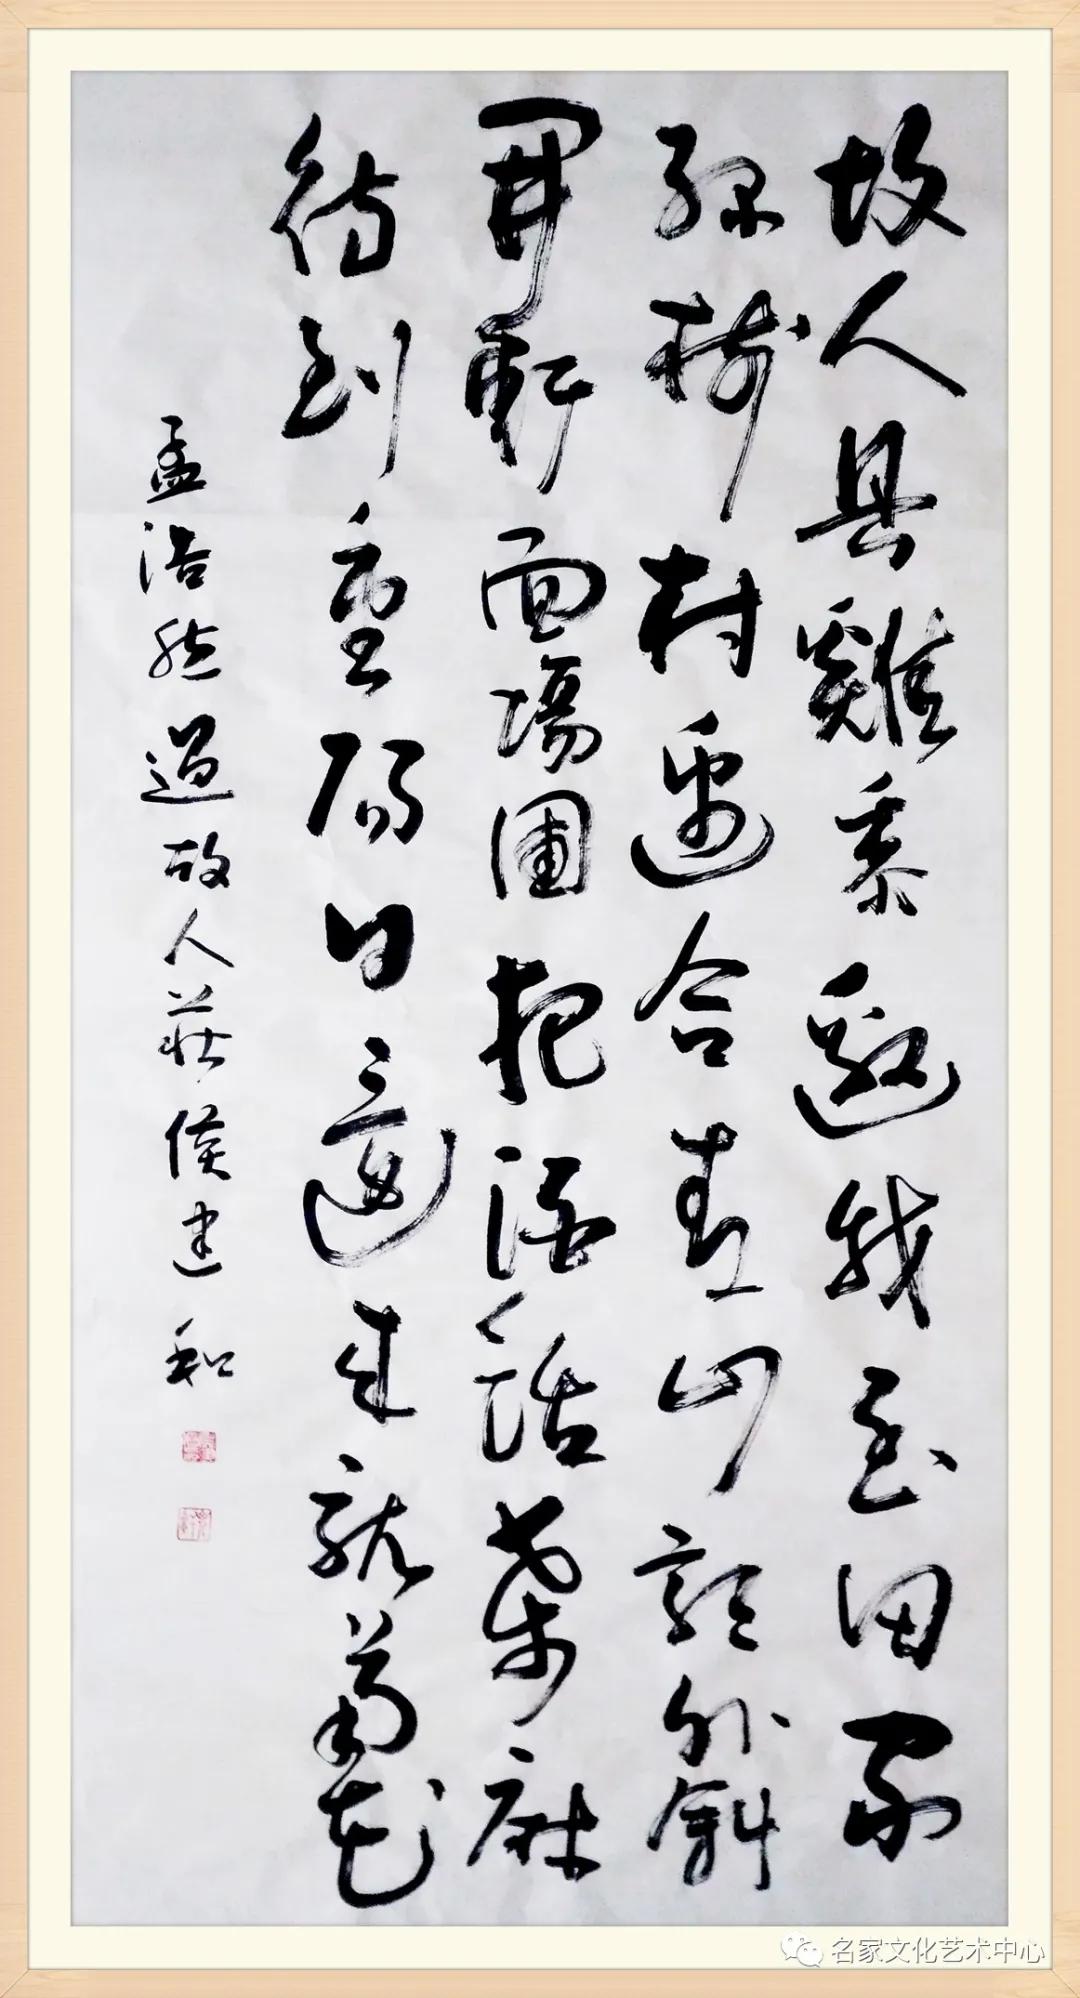 故人具雞黍邀我至田家
緑樹村邊合青山郭外斜
開軒面場圃把酒話桑麻
待到重陽日還來就菊花
孟浩然過故人莊侯建和
名家文化艺术中心